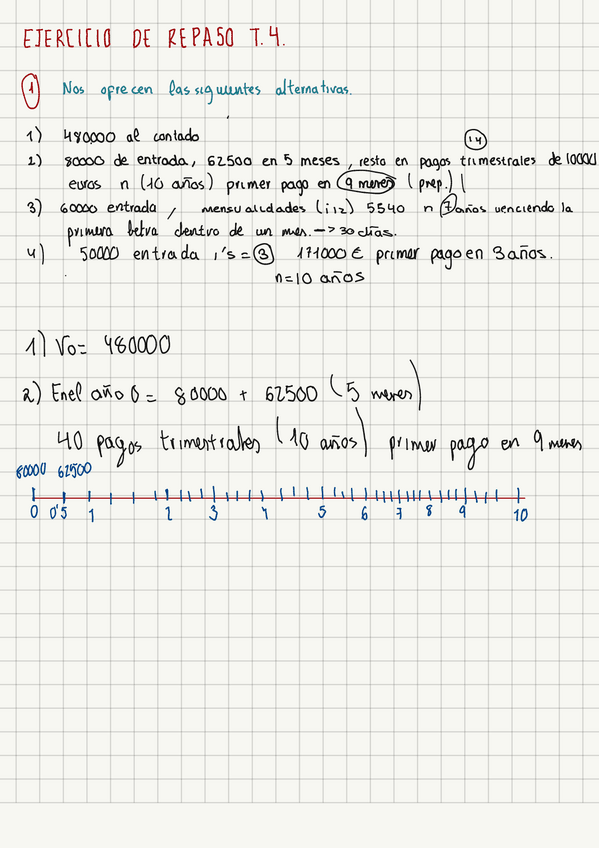 EJERCICIO DE REPASO T.4.
1 Nos ofrecen las siguientes alternativas.
1) 480000 al contado
i4
2) 80000 de entrada, 62500 en 5 meses, resto en pagos trimestrales de 10000
euros n (10 años) primer pago en 9 meses (prep.)
3) 60000 entrada, mensualidades (i12) 5540 n 7 años venciendo la
primera letra dentro de un mes. -> 30 días.
4) 50000 entrada, 's = 3 171000 € primer pago en 3 años.
n=10 años
1) Vo= 480000
2) En el año 0 = 80000 + 62500 (5 meses)
40 pagos trimestrales (10 años) primer pago en 9 meses
80000 62500
0 0'5 1 2 3 4 5 6 7 8 9 10